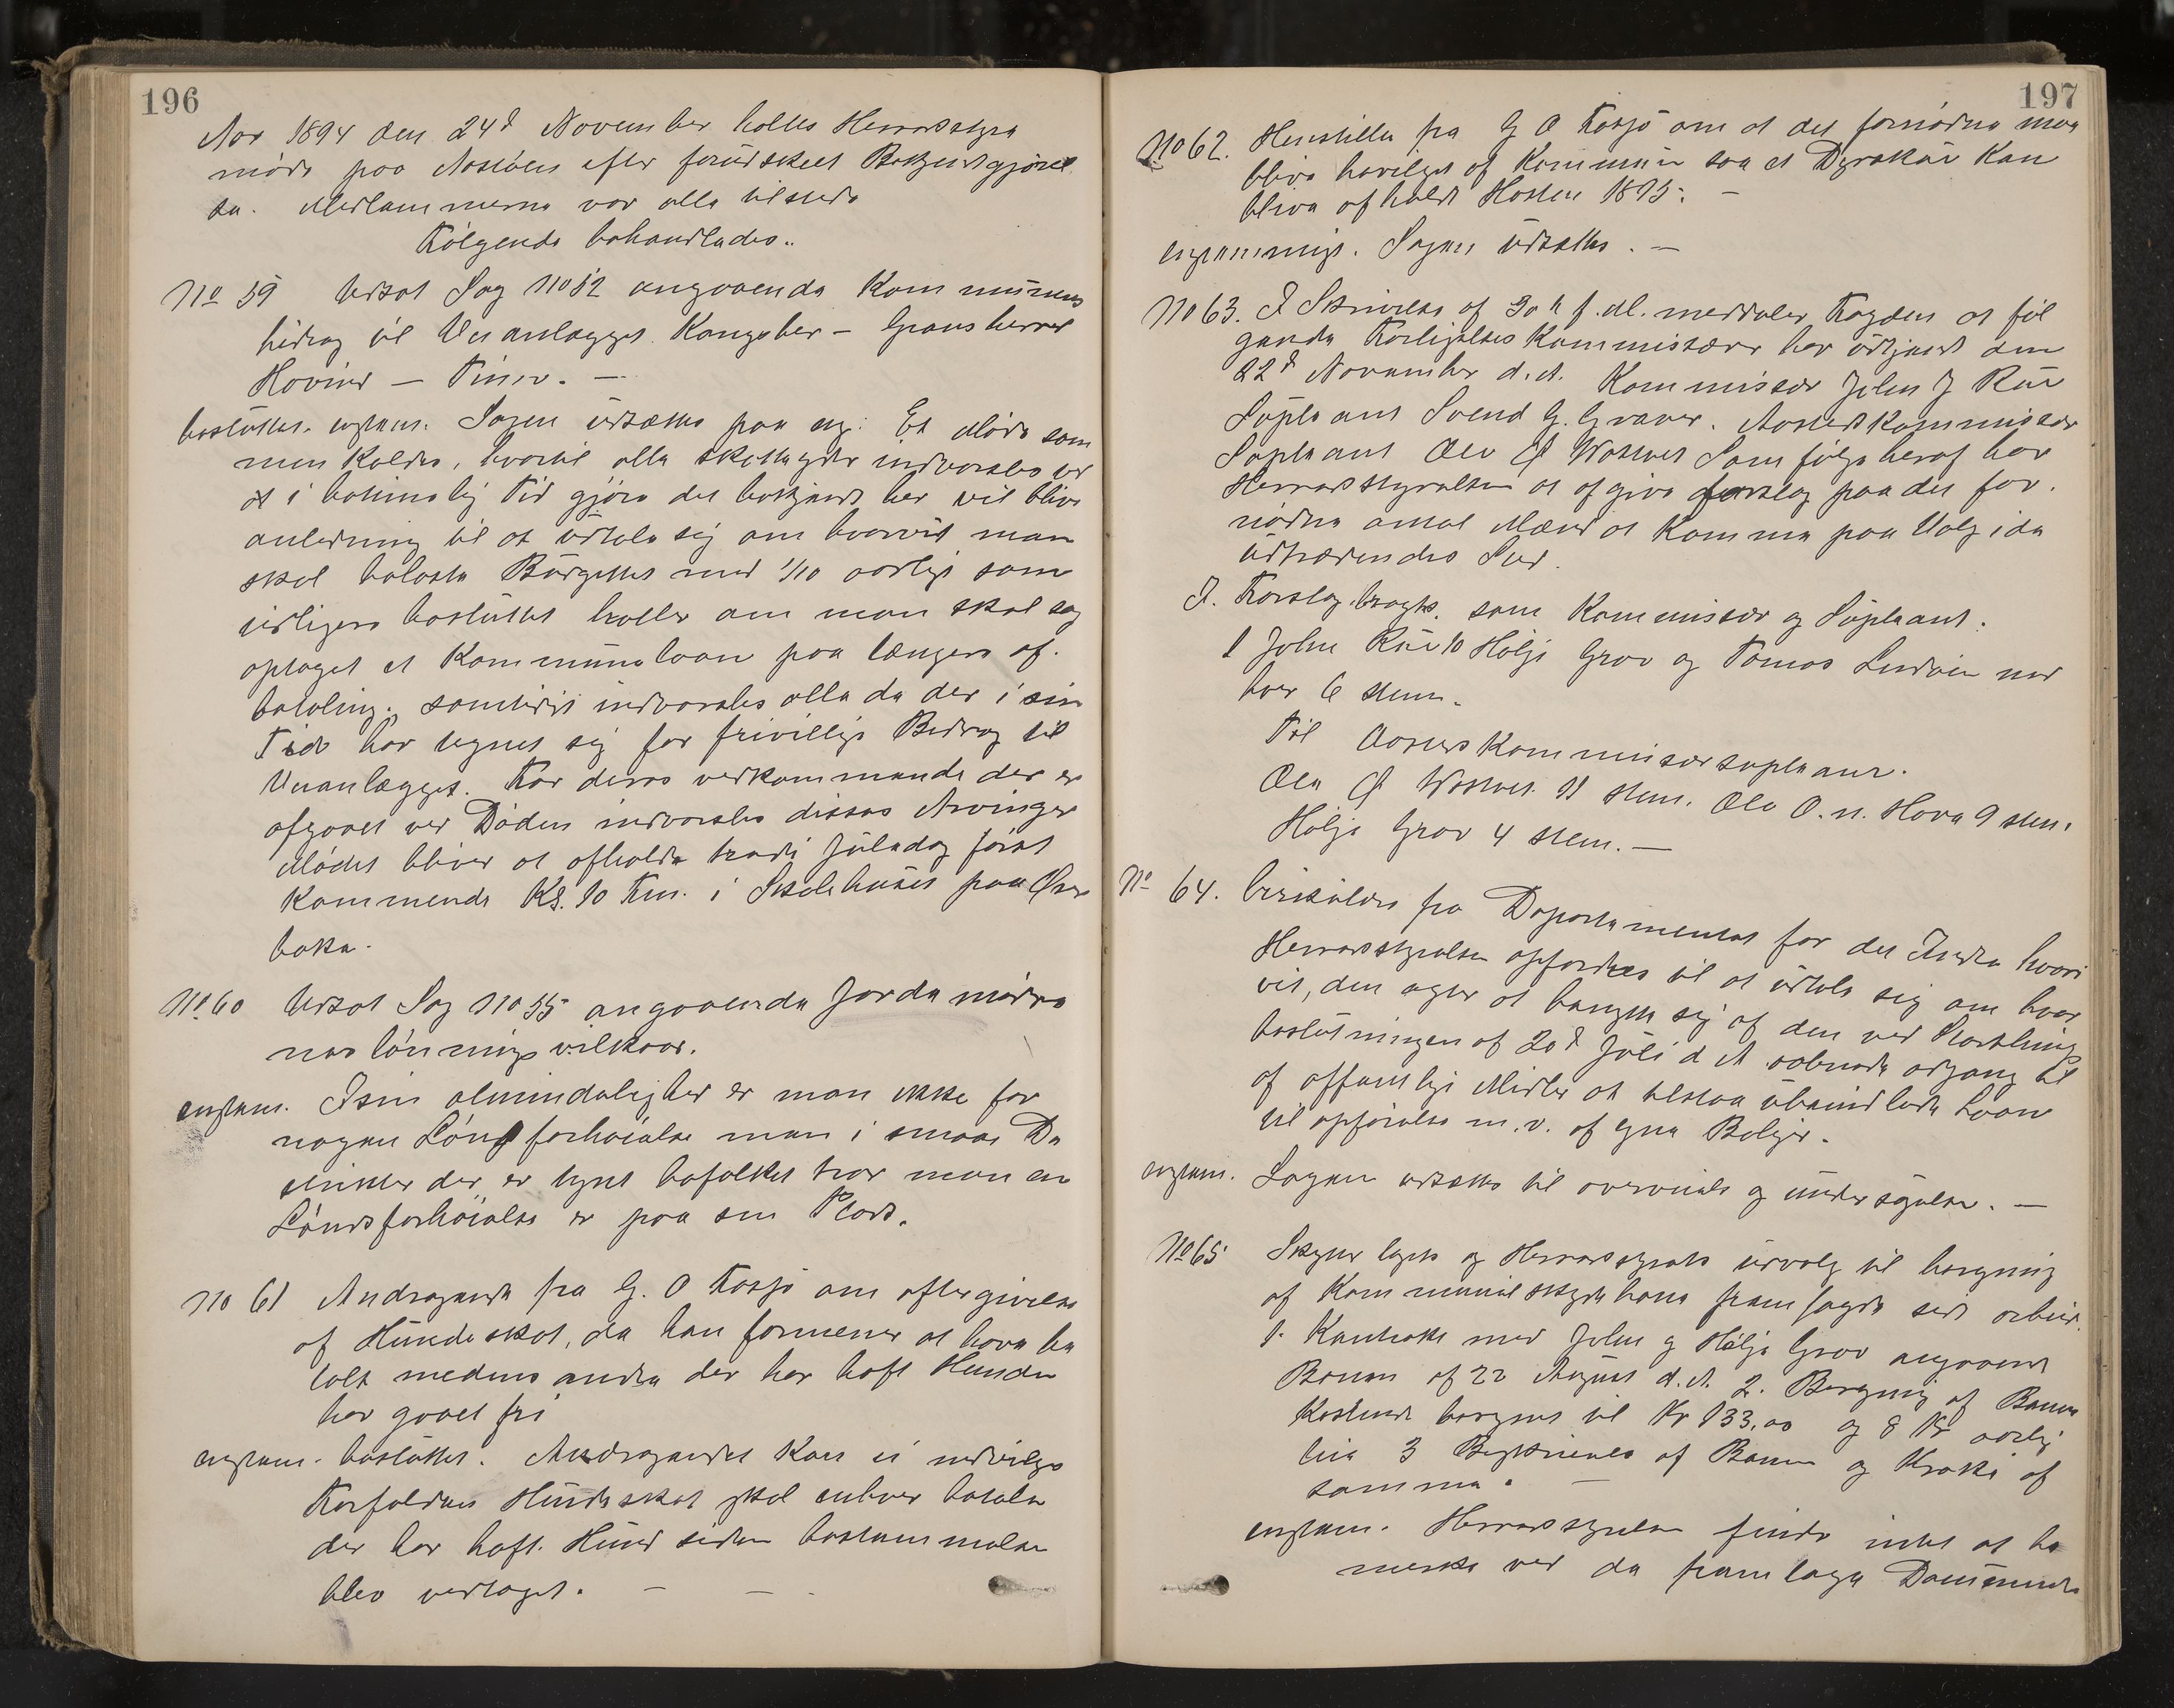 196
Aar 1894 den 24de November holtes Herredsstyre
møde paa Austbøen efter forudskeet Bekjendtgjørel
se. Medlemmerne var alle tilstede
Følgende behandledes..
No 59 Udsat Sag No 52 angaaende Kommunens
bidrag til Veianlægget Kongsber – Gransherred
Hovind – Tinn. —
besluttet. enstem. Sagen udsættes paa ny: Et Møde som
men kaldes, hvortil alle skatteyder indvarsles ved
at i betimelig Tid gjøre det bekjendt her vil blive
anledning til at udtale sig om hvorvit man
skal belaste Budgettet med 1/10 aarlig som
tidligere besluttet heller om man skal søg
optaget et Kommunelaan paa længere af.
betaling., samtidigt indvarsles alle de der i sin
Tid har tegnet sig for frivillige Bidrag til
Veianlægget. For deres vedkommende der er
afgaaet ved Døden indvarsles disses Arvinger
Mødet bliver at afholde tredi Juledag først
kommende Kl. 10 Fm. i Skolehuset paa Øver
bøka.
No 60 Udsat Sag No 55 angaaende Jordemødre
nes lønnings vilkaar.
enstem. I sin almindelighed er man ikke for
nogen Lønsforhøielse men i smaa Di
strikter der er tynt befolket tror man en
Lønsforhøielse er paa sin Plads.
No 61 Andragende fra G. O Fosjø om eftergivelse
af Hundeskat, da han formener at have be
talt medens andre der har haft Hunde
har gaaet fri
enstem. besluttet. Andragendet kan ei indvilges
Forfalden Hundeskat skal enhver betale
der har haft Hund siden bestemmelse
blev vedtaget. —
197
No 62. Henstillen fra G O Fosjø om at det fornødne maa
blive bevilget af Kommunen saa et Dyrskue kan
blive afholdt Høsten 1895. —
enstemmigt. Sagen udsættes. —
No 63. I Skrivelse af 30te f. M. meddeler Fogden at føl
gende Forligelses Kommissærer har udtjent den
22de November d. A. Kommissær John J Rue
Supleant Svend G. Graver. Aasteds Kommissær
Supleant Ole Ø Wøstveit Som følge heraf har
Herredsstyrelsen at afgive forslag paa det for.
nødne antal Mænd at komme paa Valg i de
udtrædendes Sted.
I. Forslag bragtes som Kommissær og Supleant.
1 John Rue 10 Hølje Grov og Tomas Ludvien med
hver 6 stem.
Til Aasteds Kommissærsupleant.
Ole Ø Wøstveit 11 stem. Ole O. n. Hova 9 stem.
Hølje Grov 4 stem. —
No 64. Cirkulære fra Departementet for det Indre hvori
Herredsstyrelsen opfordres til at udtale sig om hvor
vit, den agter at benytte sig af den ved Storthings
beslutningen af 20de Juli d A aabnede adgang til
af offentlige Midler at tilstaa ubemidlede Laan
til opførelse m. v. af egne Boliger.
enstem. Sagen udsættes til overveielse og undersøgelse. —
No 65 Skytterlagets og Herredsstyrets udvalg til bergning
af Kommunal skydebane fremlagde sidt arbeid.
1. Kontrakt med John og Hølje Grov angaaende
Banen af 22 August d. A. 2. Bergning af Banens
Kostende beregnet til Kr 133,00 og 8 Kr aarlig
leie 3 Beskrivelse af Banen og Kroki af
samme. —
enstem. Herredsstyrelsen finder intet at be
merke ved de fremlagte Dokumenter